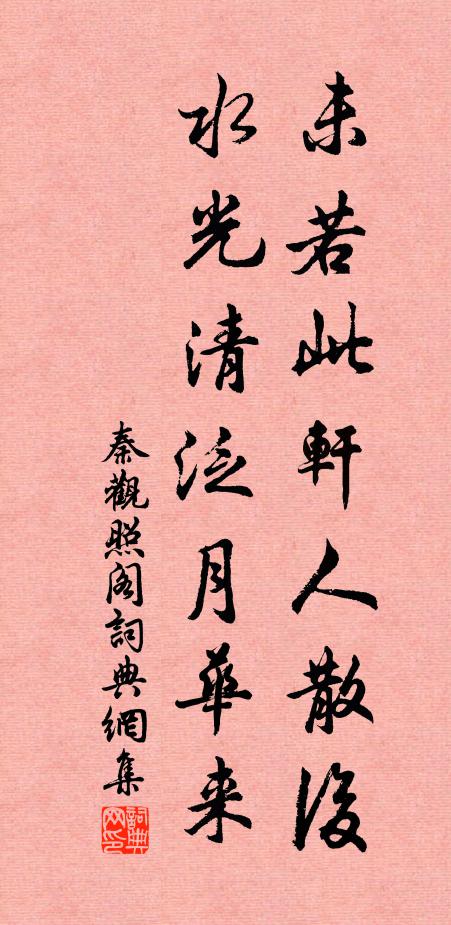 未若此軒人散後
水光清泛月華来
秦觀照阁詞典網集
詞典网印